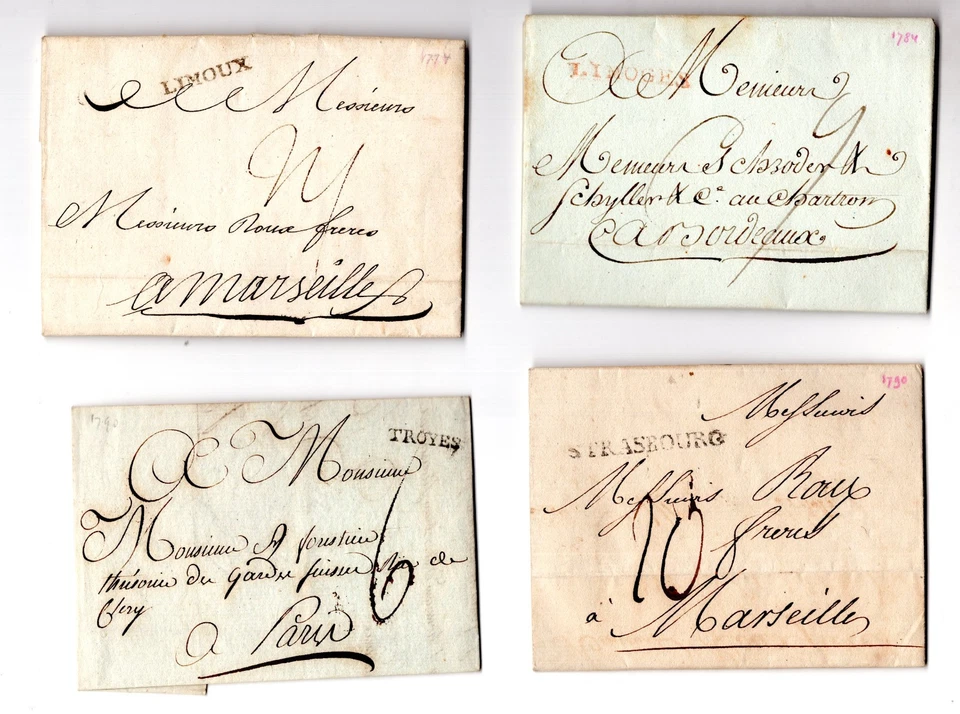 1774
LIMOUX
A Messieurs
Messieurs Roux freres
a marseille
1784
LIMOGES
A Messieurs
Messieurs Schroder &
Schyller & Cᵉ au Chartron
a Bordeaux
9
1790
TROYES
A Monsieur
Monsieur
thrésorier des gardes suisses rue de
Clery
6
a Paris
1790
STRASBOURG
Messieurs
Messieurs Roux
freres
10
à Marseille